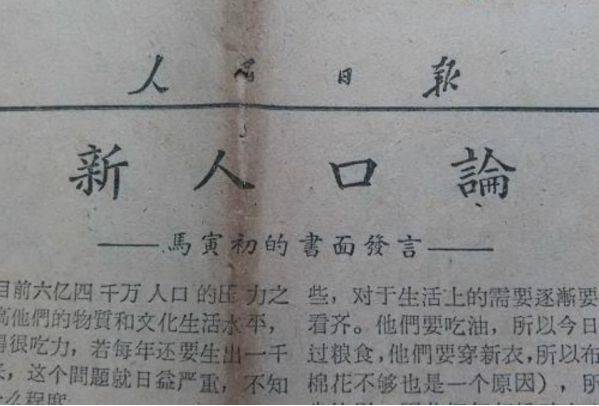 人民日報
新人口論
——馬寅初的書面發言——
目前六亿四千万人口的压力之
高他們的物質和文化生活水平，
得很吃力，若每年还要生出一千
来，这个問題就日益严重，不知
么程度
些，对于生活上的需要逐漸要
看齐。他們要吃油，所以今日
过粮食，他們要穿新衣，所以布
棉花不够也是一个原因），所